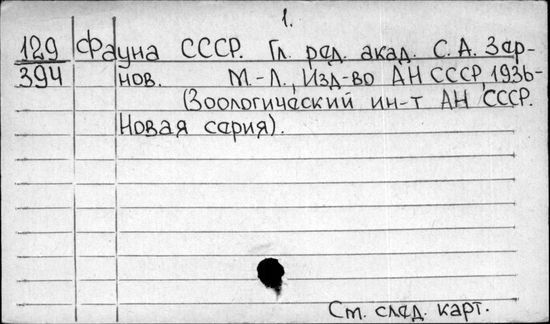 1.
129 Фауна СССР. Гл. ред. акад. С. А. Зер-
394 нов. М.-Л., Изд-во АН СССР, 1936-
(Зоологический ин-т АН СССР.
Новая серия).
См. след. карт.